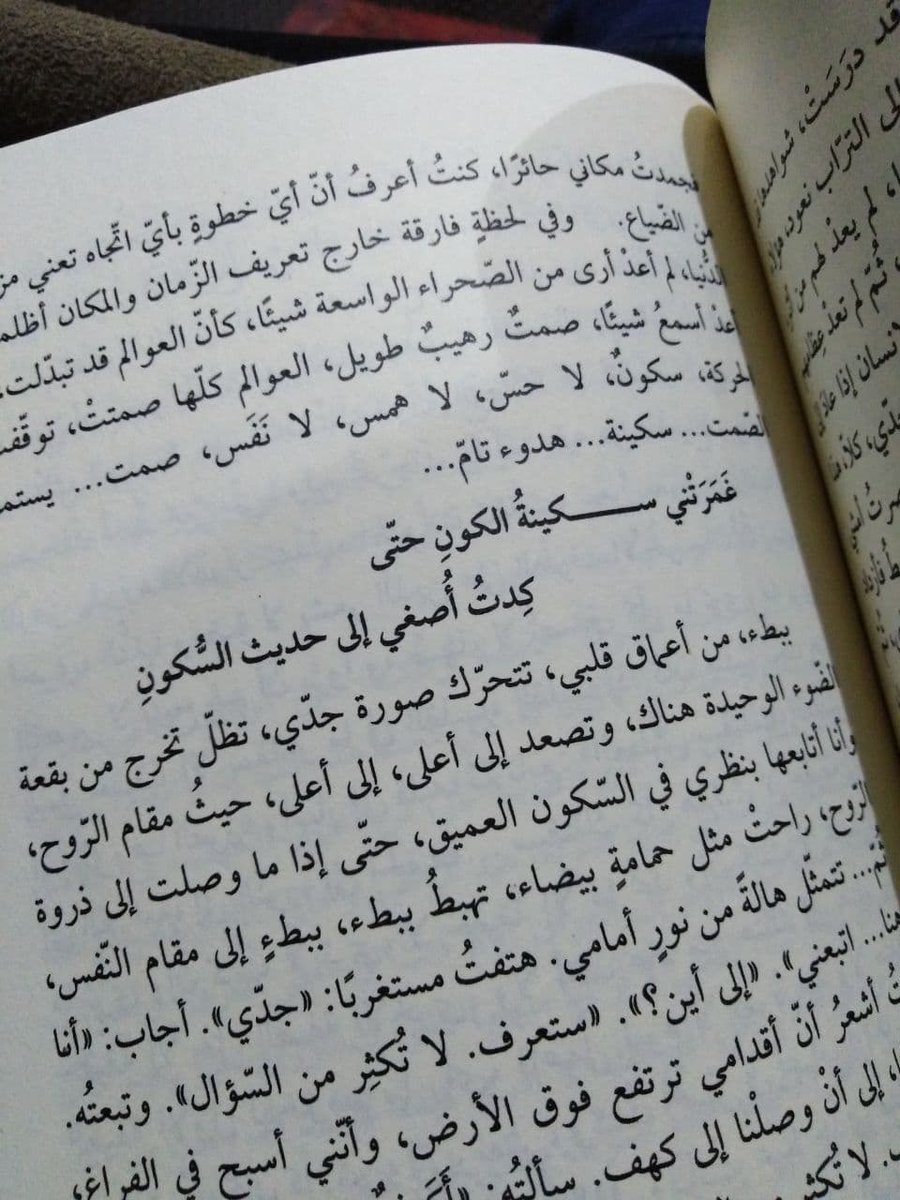 فجمدتُ مكاني حائرًا، كنتُ أعرفُ أنّ أيّ خطوةٍ بأيّ اتّجاه تعني
من الضّياع. وفي لحظةٍ فارقة خارج تعريف الزّمان والمكان
الدُّنيا، لم أعدْ أرى من الصّحراء الواسعة شيئًا، كأنّ العوالم قد تبدّلت.
أعدْ أسمعُ شيئًا، صمتٌ رهيبٌ طويل، العوالم كلّها صمتتْ،
الحركة، سكونٌ، لا حسّ، لا همس، لا نَفَس، صمت...
الصّمت... سكينة... هدوء تامّ...
غَمَرَتْني سكينةُ الكونِ حتّى
كِدتُ أُصغي إلى حديث السُّكونِ
ببطء، من أعماق قلبي، تتحرّك صورة جدّي، تظلّ تخرج من بقعة
الضّوء الوحيدة هناك، وتصعد إلى أعلى، إلى أعلى، حيثُ مقام الرّوح،
وأنا أتابعها بنظري في السّكون العميق، حتّى إذا ما وصلت إلى ذروة
الرّوح، راحتْ مثل حمامةٍ بيضاء، تهبطُ ببطء، ببطءٍ إلى مقام النّفس،
ثُمّ... تتمثّل هالةً من نورٍ أمامي. هتفتُ مستغربًا: «جدّي». أجاب: «أنا
هنا... اتبعني». «إلى أين؟». «ستعرف. لا تُكثِر من السّؤال». وتبعتُه.
أشعرُ أنّ أقدامي ترتفع فوق الأرض، وأنّني أسبح في الفراغ،
إلى أنْ وصلْنا إلى كهف. سألتُه:
لا تُكثر
قد درَسَتْ، شواهدها
التّراب نعود،
لم يعدْ لهم من
ثُمّ لم تعد